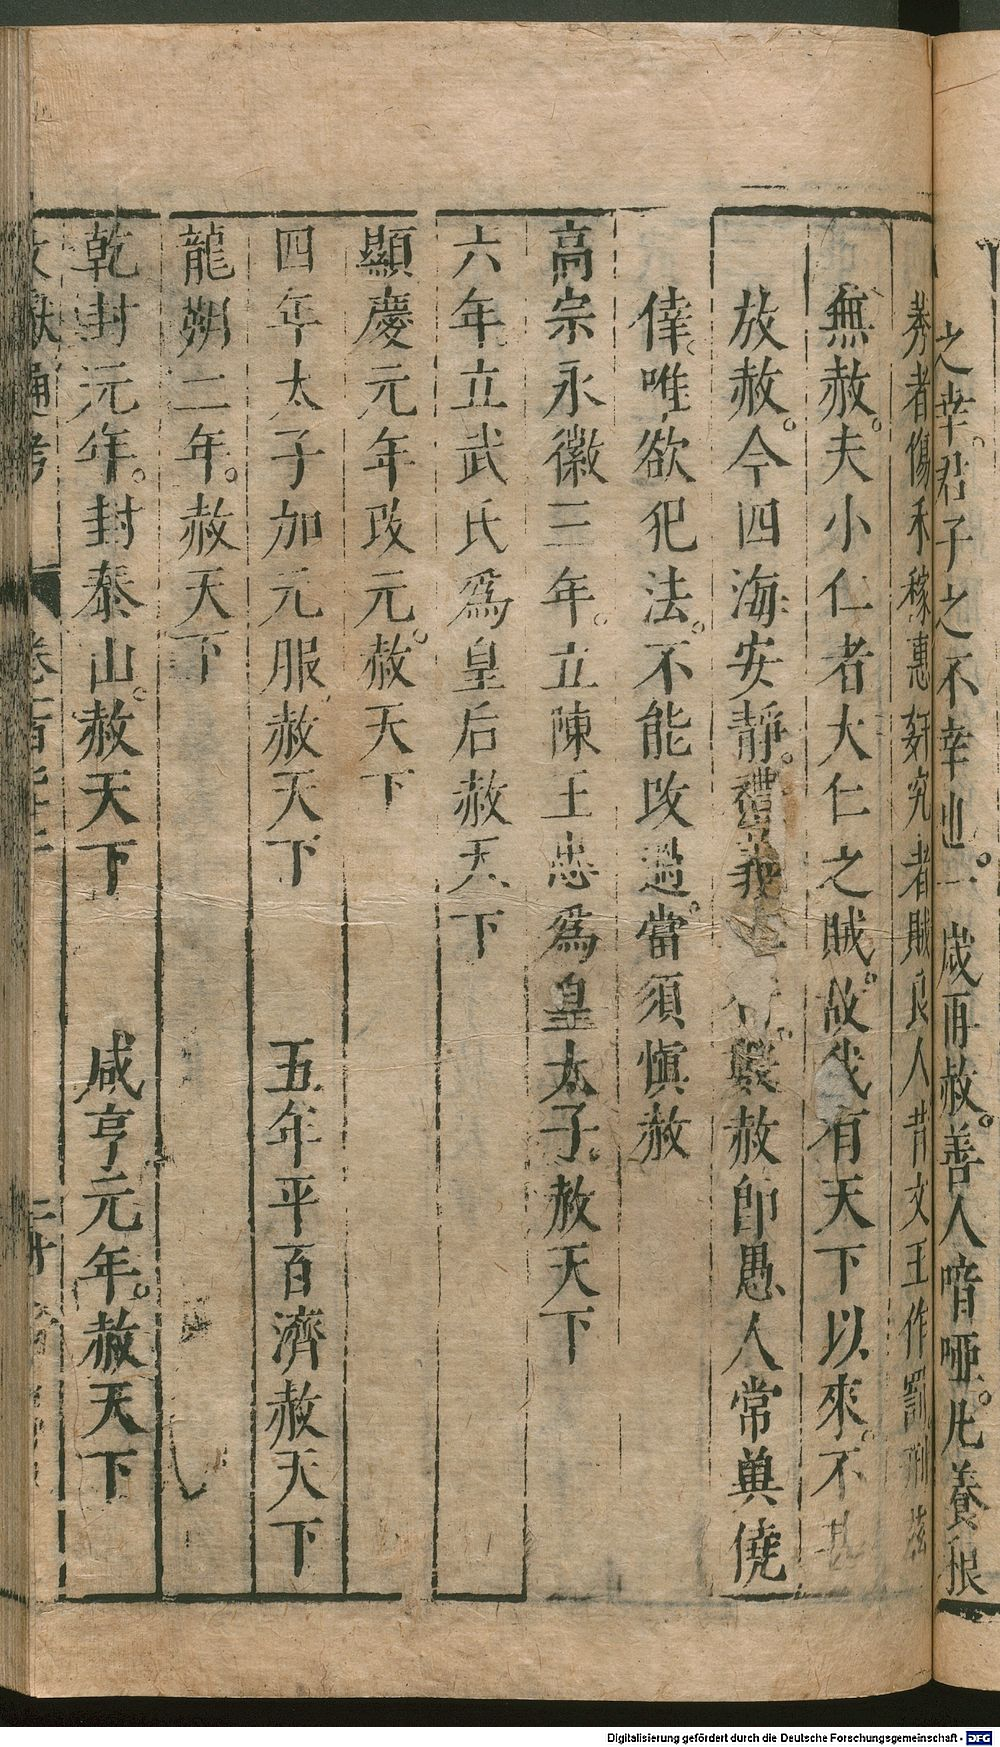 之幸君子之不幸也一歲再赦善人喑啞凡養稂
莠者傷禾稼惠姧究者賊良人昔文王作罰刑茲
無赦夫小仁者大仁之賊故我有天下以來不甚
放赦今四海安靜禮義也行數赦卽愚人常兾僥
倖唯欲犯法不能改過當須愼赦
高宗永徽三年立陳王忠爲皇太子赦天下
六年立武氏爲皇后赦天下
顯慶元年改元赦天下
四年太子加元服赦天下 五年平百濟赦天下
龍朔二年赦天下
乾封元年封泰山赦天下 咸亨元年赦天下
文獻通考
Digitalisierung gefördert durch die Deutsche Forschungsgemeinschaft - DFG